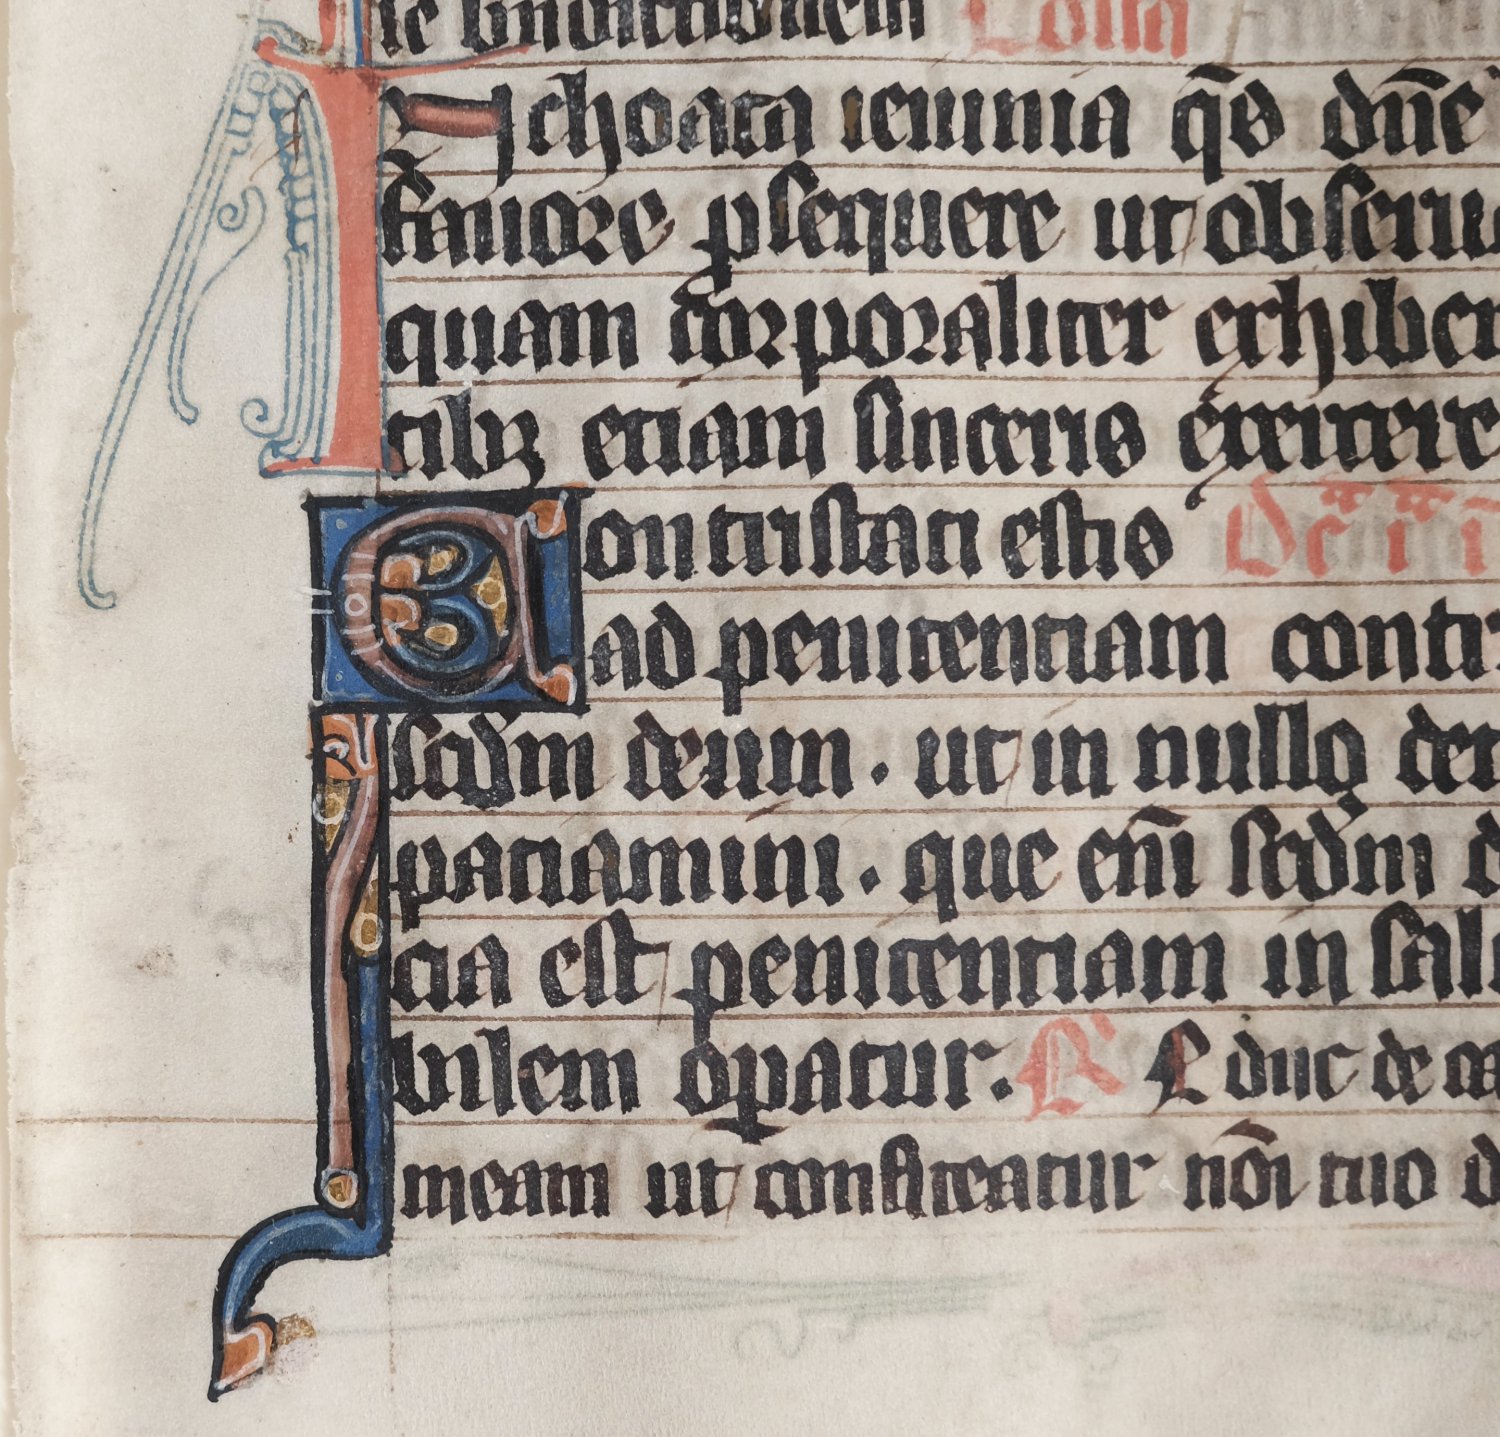 le benedictionem Colla
Inchoata ieiunia q̄s dn̄e
fauore ꝑsequere ut obserua
quam corporaliter exhiben
tibꝫ etiam sinceris exercere
Contristati estis
ad penitentiam contri
scdm deum. ut in nullo detr
patiamini. que em̄ scdm d
cia est penitentiam in salu
bilem oꝑatur. R Educ de car
meam ut confiteatur nōi tuo d